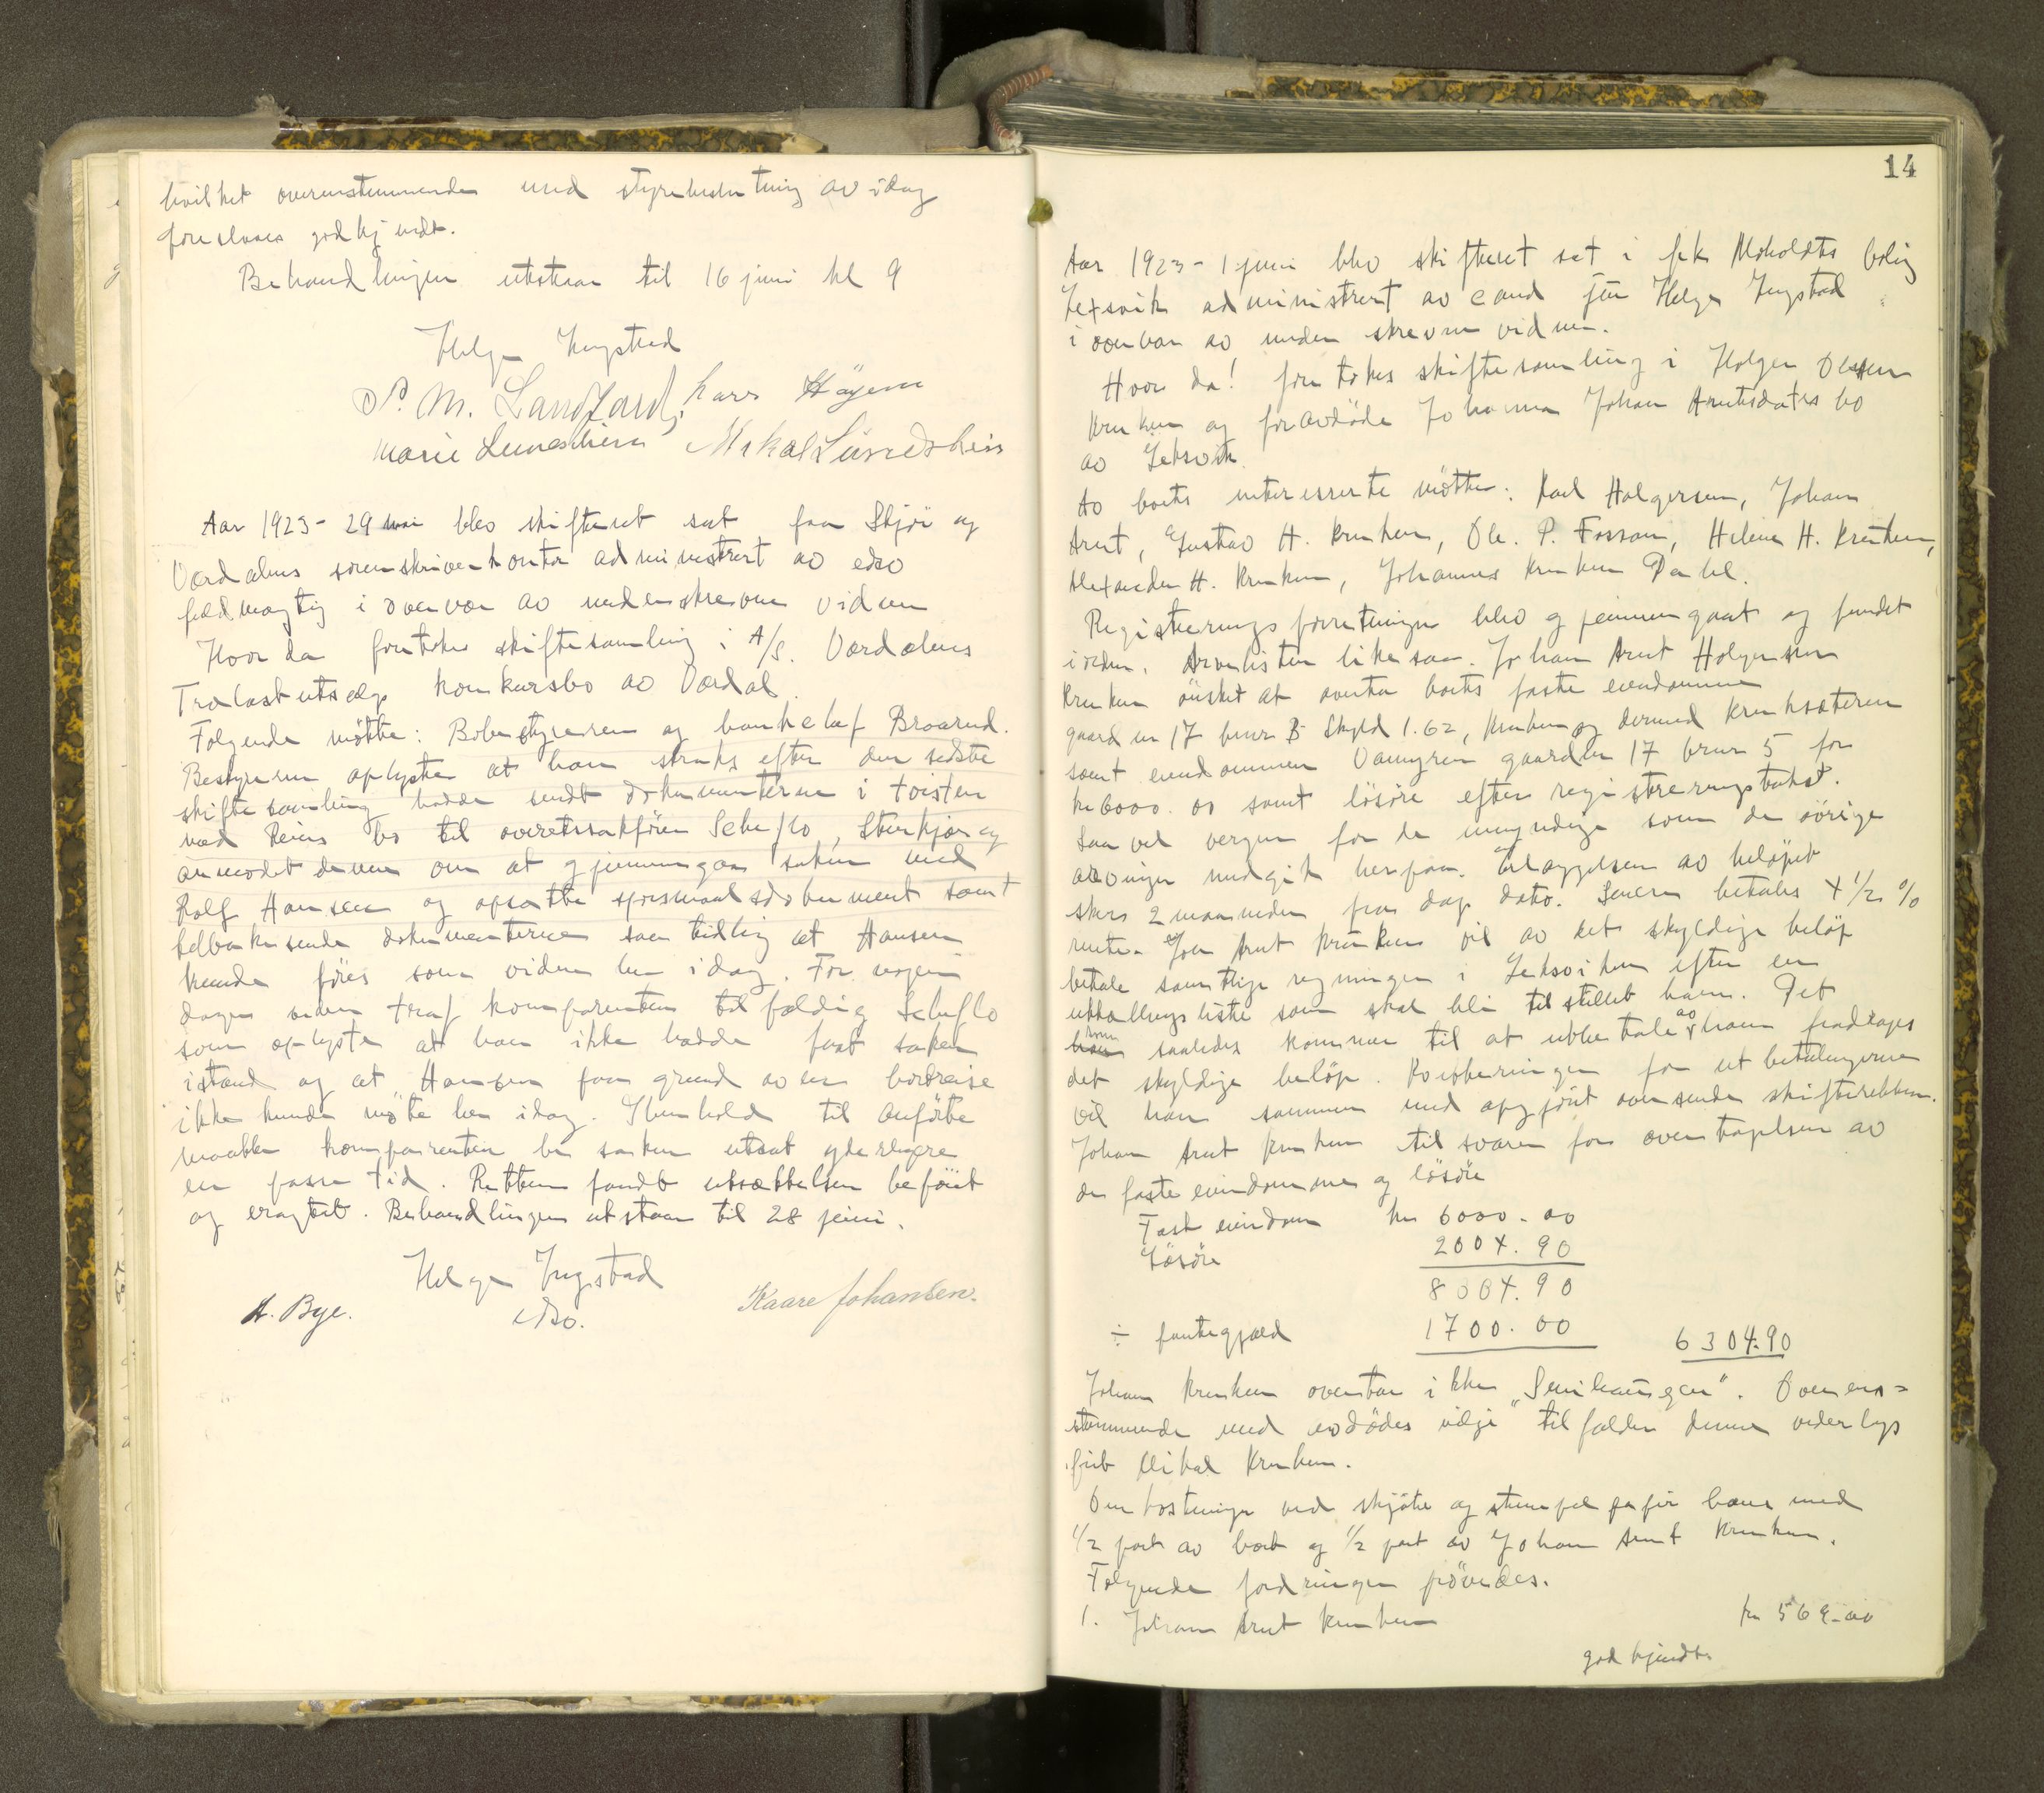 hvilket overensstemmende med styrebeslutning av idag
foreslaaes godkjendt.
Behandlingen utstaar til 16 juni kl 9
Helge Ingstad
P. M. Landfald, Lars Höyem
Marie Lundsheim Mikal Lundsheim
Aar 1923 - 29 mai blev skifteret sat paa Stjör og
Værdalens sorenskriverkontor administrert av edsv
fuldmægtig i overvær av underskrevne vidner
Hvor da foretokes skiftesamling i A/S. Værdalens
Trælastutsalgs konkursbo av Værdal.
Følgende møtte: Bobestyreren og bankchef Broarud.
Bestyreren oplyste at han straks efter den sidste
skiftesamling hadde sendt dokumenterne i tvisten
med Reins bo til overetssakfører Scheflo, Stenkjær og
anmodet denne om at gjennemgaa saken med
Rolf Hansen og opsætte spørsmaalsdokument samt
tilbakesende dokumenterne saa tidlig at Hansen
kunde føres som vidne her idag. For nogen
dager siden traf komparenten tilfældig Scheflo
som oplyste at han ikke hadde faat saken
istand og at Hansen paa grund av en bortreise
ikke kunde møte her idag. I henhold til anførte
maatte komparenten be saken utsat yderligere
en passe tid. Retten fandt utsættelsen beføiet
og eragtet. Behandlingen utstaar til 28 juni.
Helge Ingstad
A. Bye. edsv. Kaare Johansen.
14
Aar 1923 - 1 juni blev skifteret sat i frk Moholdts bolig
Lexvik administrert av cand jur Helge Ingstad
i overvær av underskrevne vidner.
Hvor da! foretokes skiftesamling i Holger Olsen
Kruken og foravdøde Johanna Johan Arntsdatters bo
av Leksvik.
Av boets interesserte møtte: Karl Holgersen, Johan
Arnt, Gustav H. Kruken, Ole. P. Fossan, Helene H. Kruken,
Alexander H. Kruken, Johannes Kruken Dahl.
Registreringsforretningen blev gjennemgaat og fundet
iorden. Arvelisten likesaa. Johan Arnt Holgersen
Kruken ønsket at overta boets faste eiendomme
gaard nr 17 brnr 3 Skyld 1.62, Kruken og dermed Kruksæteren
samt eiendommen Vamyren gaard nr 17 brnr 5 for
kr 6000.00 samt løsøre efter registreringstakst.
Saavel vergen for de umyndige som de øvrige
arvinger medgik herpaa. Erlæggelsen av beløpet
skers 2 maaneder fra dags dato. Senere betales 4 1/2 %
rente. Johan Arnt Kruken vil av det skyldige beløp
betale samtlige regninger i Leksviken efter en
utbetalingsliste som skal bli tilstillet ham. Det
som saaledes kommer til at utbetale av ham fradrages
det skyldige beløp. Kvitteringer for utbetalingerne
vil han sammen med opgjøret oversende skifteretten.
Johan Arnt Kruken tilsvarer for overtagelsen av
de faste eiendomme og løsøre
Fast eiendom kr 6000.00
Løsøre 2004.90
8004.90
÷ pantegjæld 1700.00 6304.90
Johan Kruken overtar ikke "Senihaugen". Overens=
stemmende med avdødes vilje tilfalder denne vederlags
frit Mikal Kruken.
Omkostninger ved skjøte og stempelpapir bæres med
1/2 part av boet og 1/2 part av Johan Arnt Kruken.
Følgende fordringer prøvedes.
1. Johan Arnt Kruken kr 569.00
godkjendtes